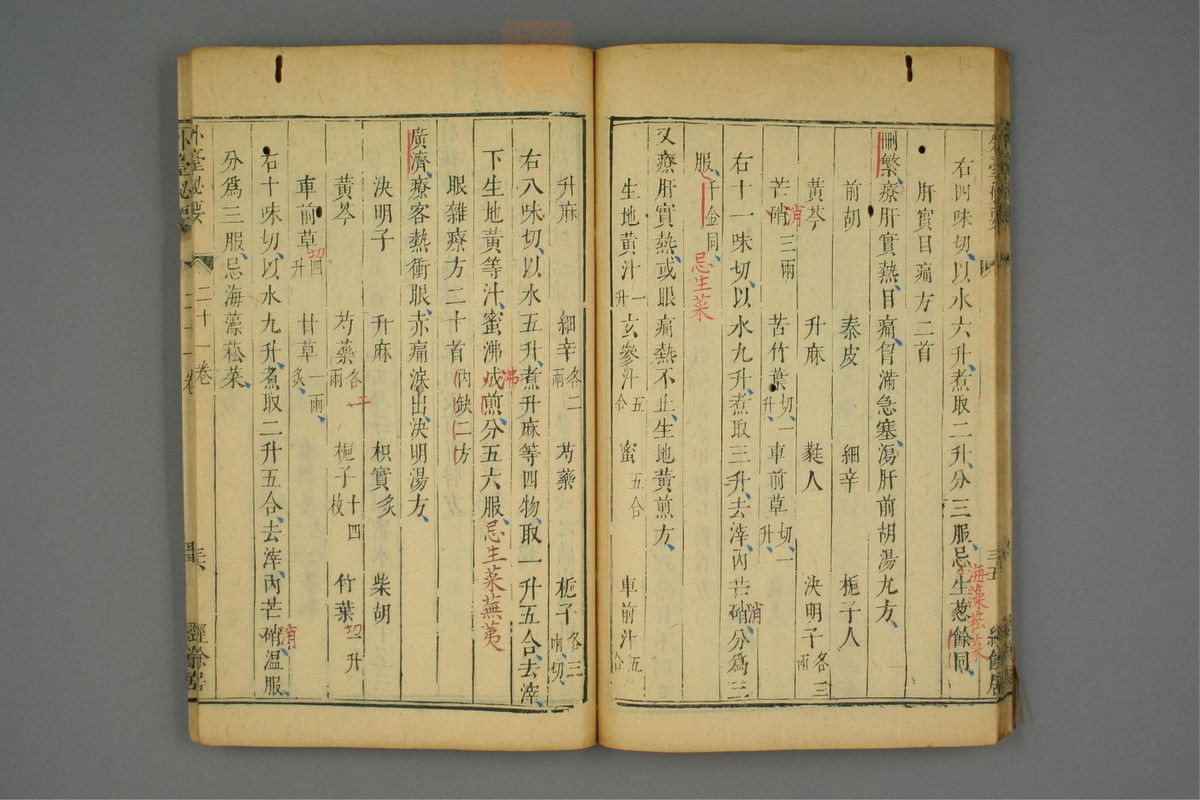 右四味切以水六升煮取二升分三服忌生葱餘同
海藻菘菜
肝實目痛方二首
刪繁療肝實熱目痛胷滿急塞瀉肝前胡湯九方
前胡 秦皮 細辛 梔子人
黃芩 升麻 蕤人 決明子各三兩
芒硝三兩 苦竹葉切一升 車前草切一升
消
右十一味切以水九升煮取三升去滓內芒硝分爲三
消
服千金同
忌生菜
又療肝實熱或眼痛熱不止生地黃煎方
生地黃汁一升 玄參汁五合 蜜五合 車前汁五合
升麻 細辛各二兩 芍藥 梔子各三兩切
右八味切以水五升煮升麻等四物取一升五合去滓
下生地黃等汁蜜沸成煎分五六服
沸
忌生菜蕪荑
眼雜療方二十首內缺二方
廣濟療客熱衝眼赤痛淚出決明湯方
決明子 升麻 枳實炙 柴胡
黃芩 芍藥各二兩 梔子十四枚 竹葉切二升
車前草切四升 甘草一兩炙
右十味切以水九升煮取二升五合去滓內芒硝溫服
消
分爲三服忌海藻菘菜
外臺秘要 二十一卷 三六 經餘居